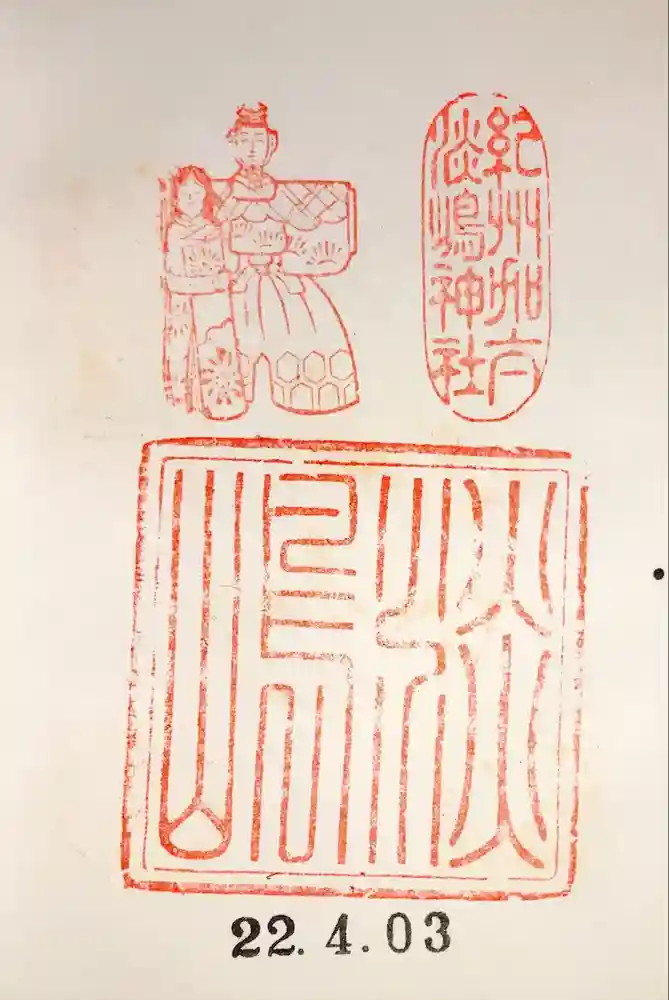 紀州加太
淡嶋神社
淡
嶋
22.4.03